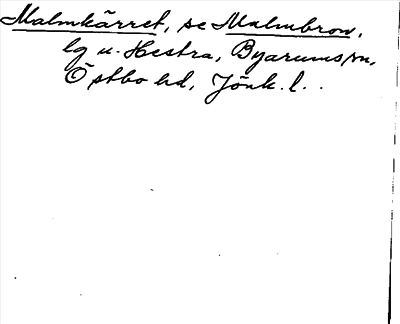 Malmkärret, se Malmbron,
lg u. Hestra, Byarums sn,
Östbo hd, Jönk. l.